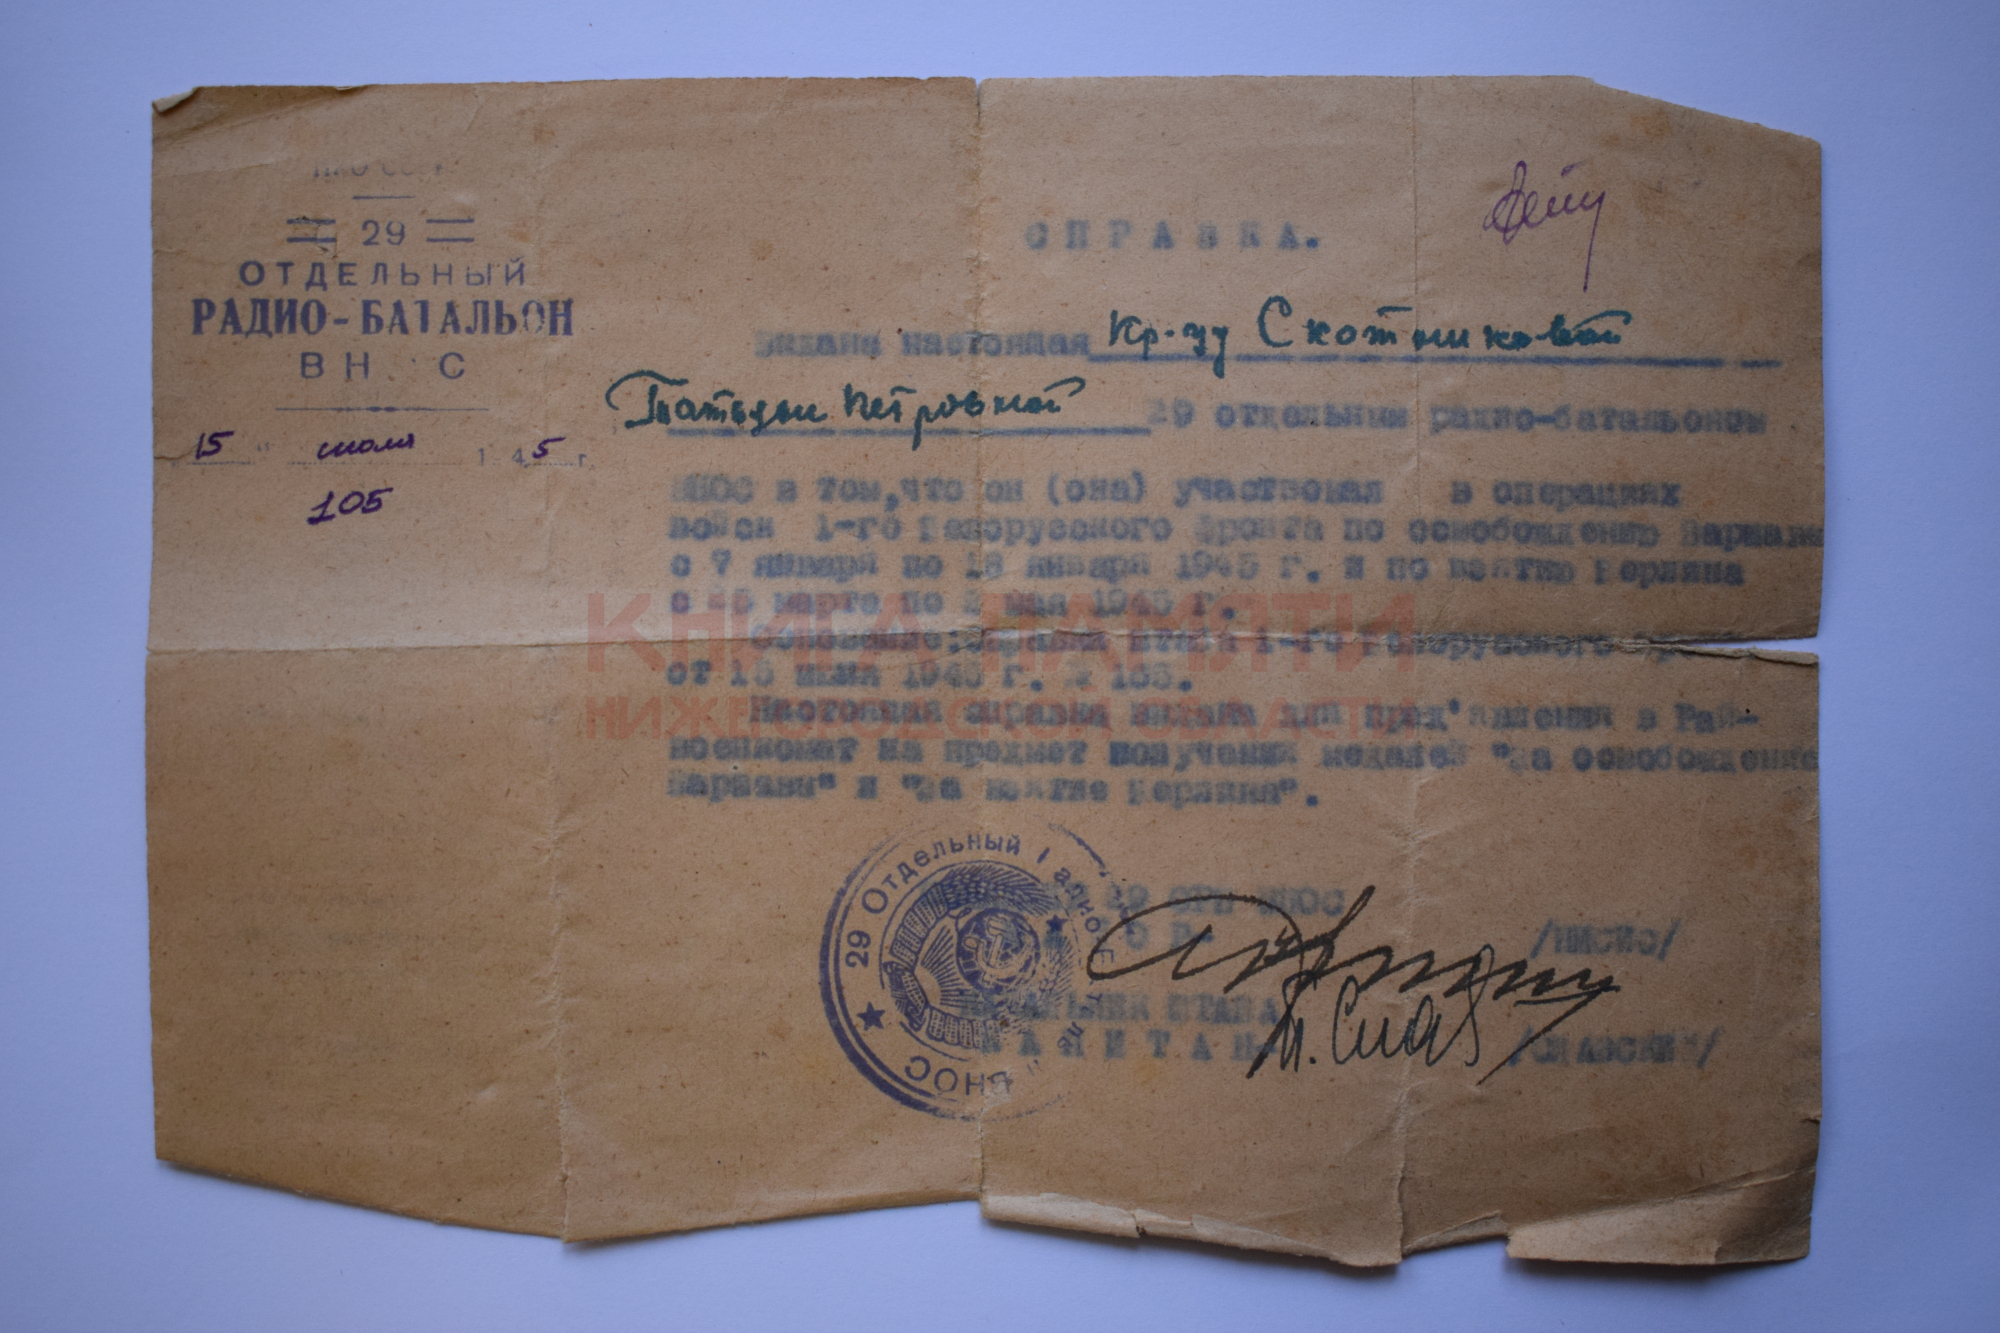 29
ОТДЕЛЬНЫЙ
РАДИО-БАТАЛЬОН
ВН С
15 " июля 1 45 г.
105
СПРАВКА.
Выдана настоящая Кр-цу Скотниковой
Татьяне Петровной 29 отдельным радио-батальоном
ВНОС в том, что он (она) участвовал в операциях
войск 1-го Белорусского фронта по освобождению Варшавы
с 7 января по 18 января 1945 г. и по взятию Берлина
с марта по 2 мая 1945 г.
Основание: справка штаба 1-го Белорусского
от 15 июня 1945 г.
Настоящая справка выдана для пред'явления в Рай-
военкомат на предмет получения медалей "За освобождение
Варшавы" и "За взятие Берлина".
29 Отдельный ВНОС
29 ОРБ ВНОС
НАЧАЛЬНИК ШТАБА
КАПИТАН
КНИГА ПАМЯТИ
НИЖЕГОРОДСКОЙ ОБЛАСТИ